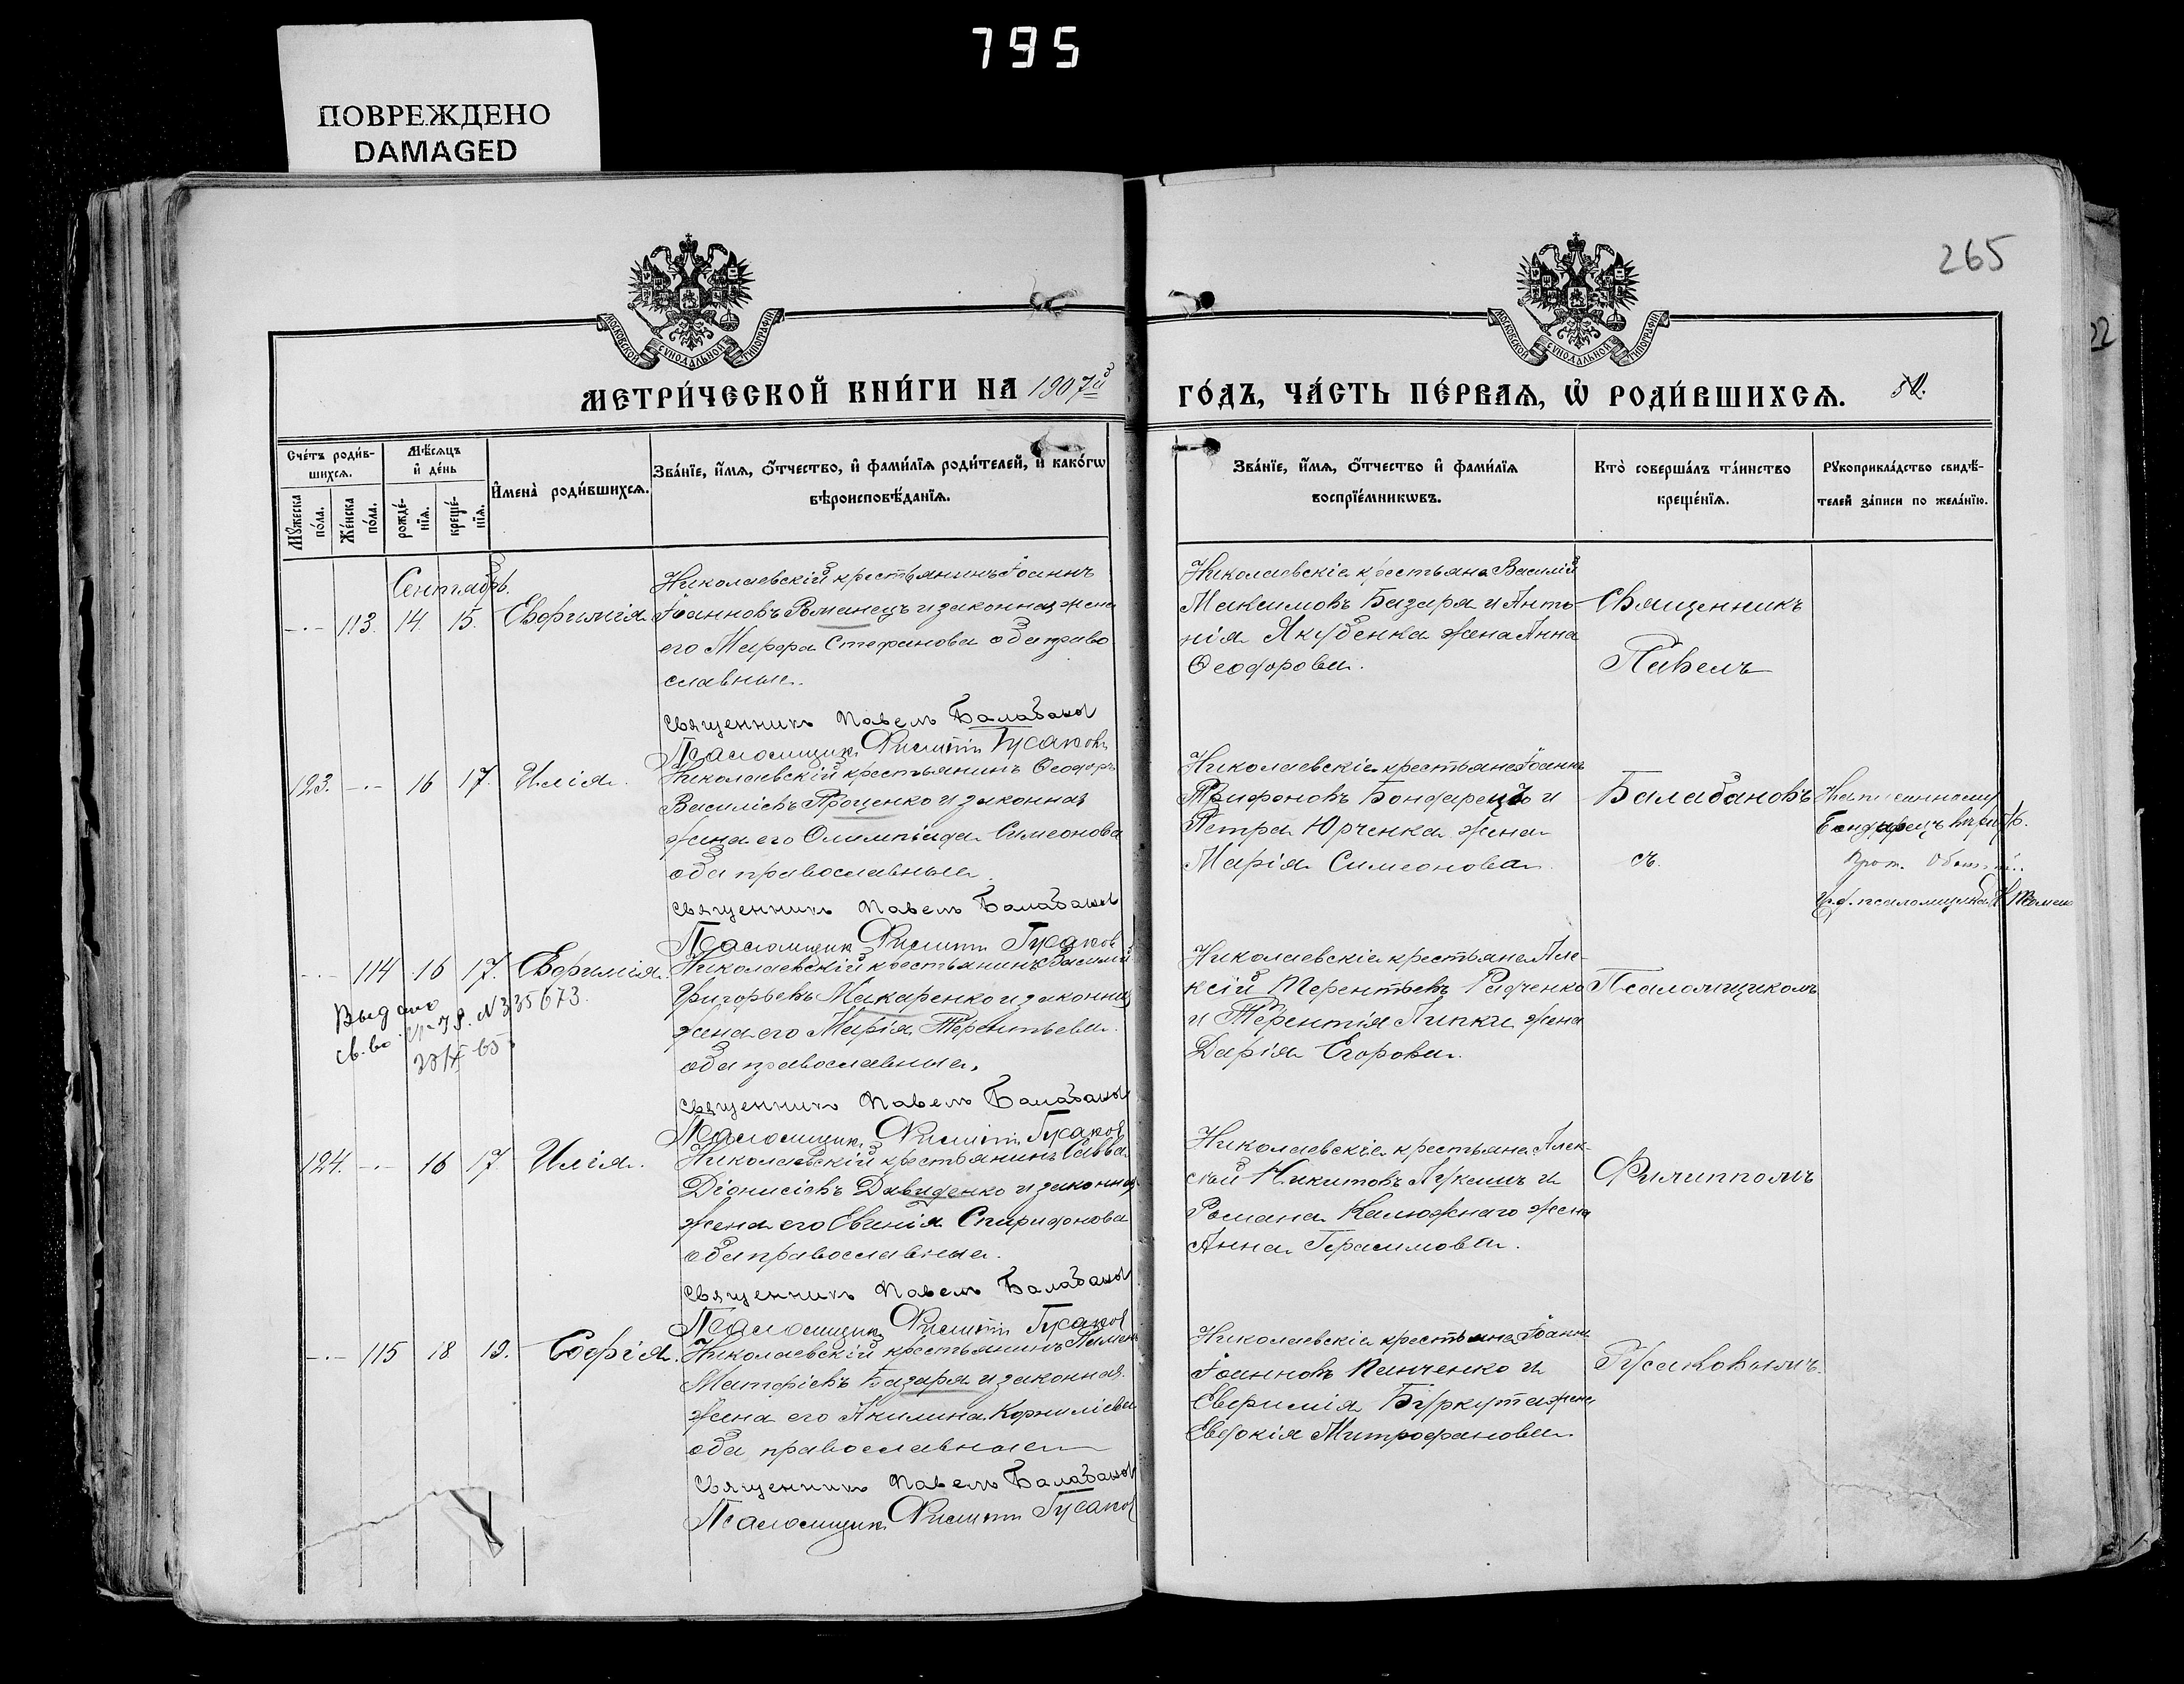 795
ПОВРЕЖДЕНО
DAMAGED
265
22
МОСКОВСКОЙ СѴНОДАЛЬНОЙ ТИПОГРАФІИ
МОСКОВСКОЙ СѴНОДАЛЬНОЙ ТИПОГРАФІИ
МЕТРИ́ЧЕСКОЙ КНИ́ГИ НА 1907й
ГО́ДЪ, ЧА́СТЬ ПЕ́РВАѦ, Ѡ҆ РОДИ́ВШИХСѦ.
Сче́тъ роди́в-
шихсѧ.
Мꙋ́жеска по́ла.
Же́нска по́ла.
Мѣ́сѧцъ
и҆ де́нь
рожде́-
нїѧ.
креще́-
нїѧ.
И҆мена̀ роди́вшихсѧ.
Зва́нїе, и҆́мѧ, ѻ҆́тчество, и҆ фами́лїѧ роди́телей, и҆ како́гѡ
вѣроисповѣ́данїѧ.
Зва́нїе, и҆́мѧ, ѻ҆́тчество и҆ фами́лїѧ
воспрїе́мникѡвъ.
Кто̀ соверша́лъ та́инство
креще́нїѧ.
Рꙋкоприкла́дство свидѣ́-
телей за́писи по жела́нїю.
Сентябрь.
-·- 113. 14. 15. Евфимія
Николаевскій крестьянинъ Іоаннъ
Іоанновъ Романецъ и законная жена
его Марфа Стефанова оба право
славные.
Священникъ Павелъ Балабановъ
Псаломщикъ Филиппъ Гусаковъ
Николаевскіе крестьяне Василій
Максимовъ Базаря и Анто-
нія Якубенка жена Анна
Ѳеодорова.
Священникъ
Павелъ
123. -·- 16 17. Илія.
Николаевскій крестьянинъ Ѳеодоръ
Василіевъ Проценко и законная
жена его Олимпіада Симеонова
оба православные.
Священникъ Павелъ Балабановъ
Псаломщикъ Филиппъ Гусаковъ
Николаевскіе крестьяне Іоаннъ
Трифоновъ Бондарецъ и
Петра Юрченка жена
Марія Симеонова
Балабановъ
съ
Бондарецъ
Прот.
-·- 114 16 17. Евфимія.
Выдано
св.во
№335673.
Николаевскій крестьянинъ Василій
Григорьевъ Макаренко и законная
жена его Марія Терентьева.
оба православные.
Священникъ Павелъ Балабановъ
Псаломщикъ Филиппъ Гусаковъ
Николаевскіе крестьяне Але-
ксій Терентьевъ Радченко
и Терентія Липки жена
Дарія Егорова.
Псаломщикомъ
124. -·- 16 17 Илія.
Николаевскій крестьянинъ Савва
Діонисіевъ Давиденко и законная
жена его Евгенія Спиридонова
оба православные.
Священникъ Павелъ Балабановъ
Псаломщикъ Филиппъ Гусаковъ
Николаевскіе крестьяне Алек-
сѣй Никитовъ Лукашъ и
Романа Калюжнаго жена
Анна Герасимова.
Филиппомъ
-·- 115 18 19. Софія.
Николаевскій крестьянинъ
Матфіевъ Базаря и законная
жена его Акилина Корниліева
оба православные
Священникъ Павелъ Балабановъ
Псаломщикъ Филиппъ Гусаковъ
Николаевскіе крестьяне Іоаннъ
Іоанновъ Панченко и
Евфимія Буркута жена
Евдокія Митрофанова
Гусаковымъ.